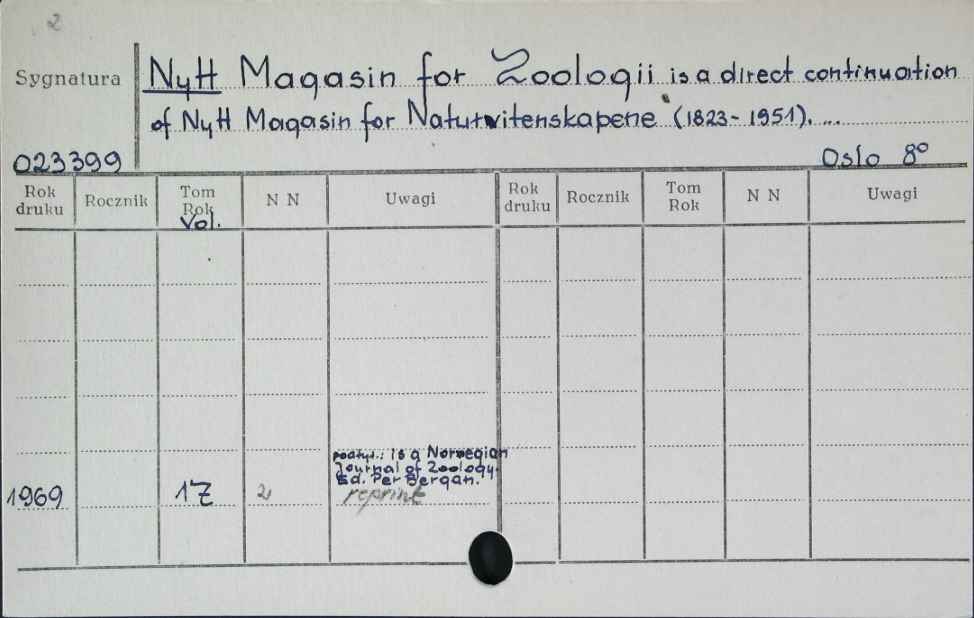 2
Sygnatura
Nytt Magasin for Zoologii is a direct continuation
of Nytt Magasin for Naturvitenskapene (1823-1951). ...
023399
Oslo 8°
Rok druku Rocznik Tom Rok Vol. N N Uwagi Rok druku Rocznik Tom Rok N N Uwagi
podtyt.: is a Norwegian
Journal of Zoology.
Ed. Per Bergan.
1969 17 2 reprint